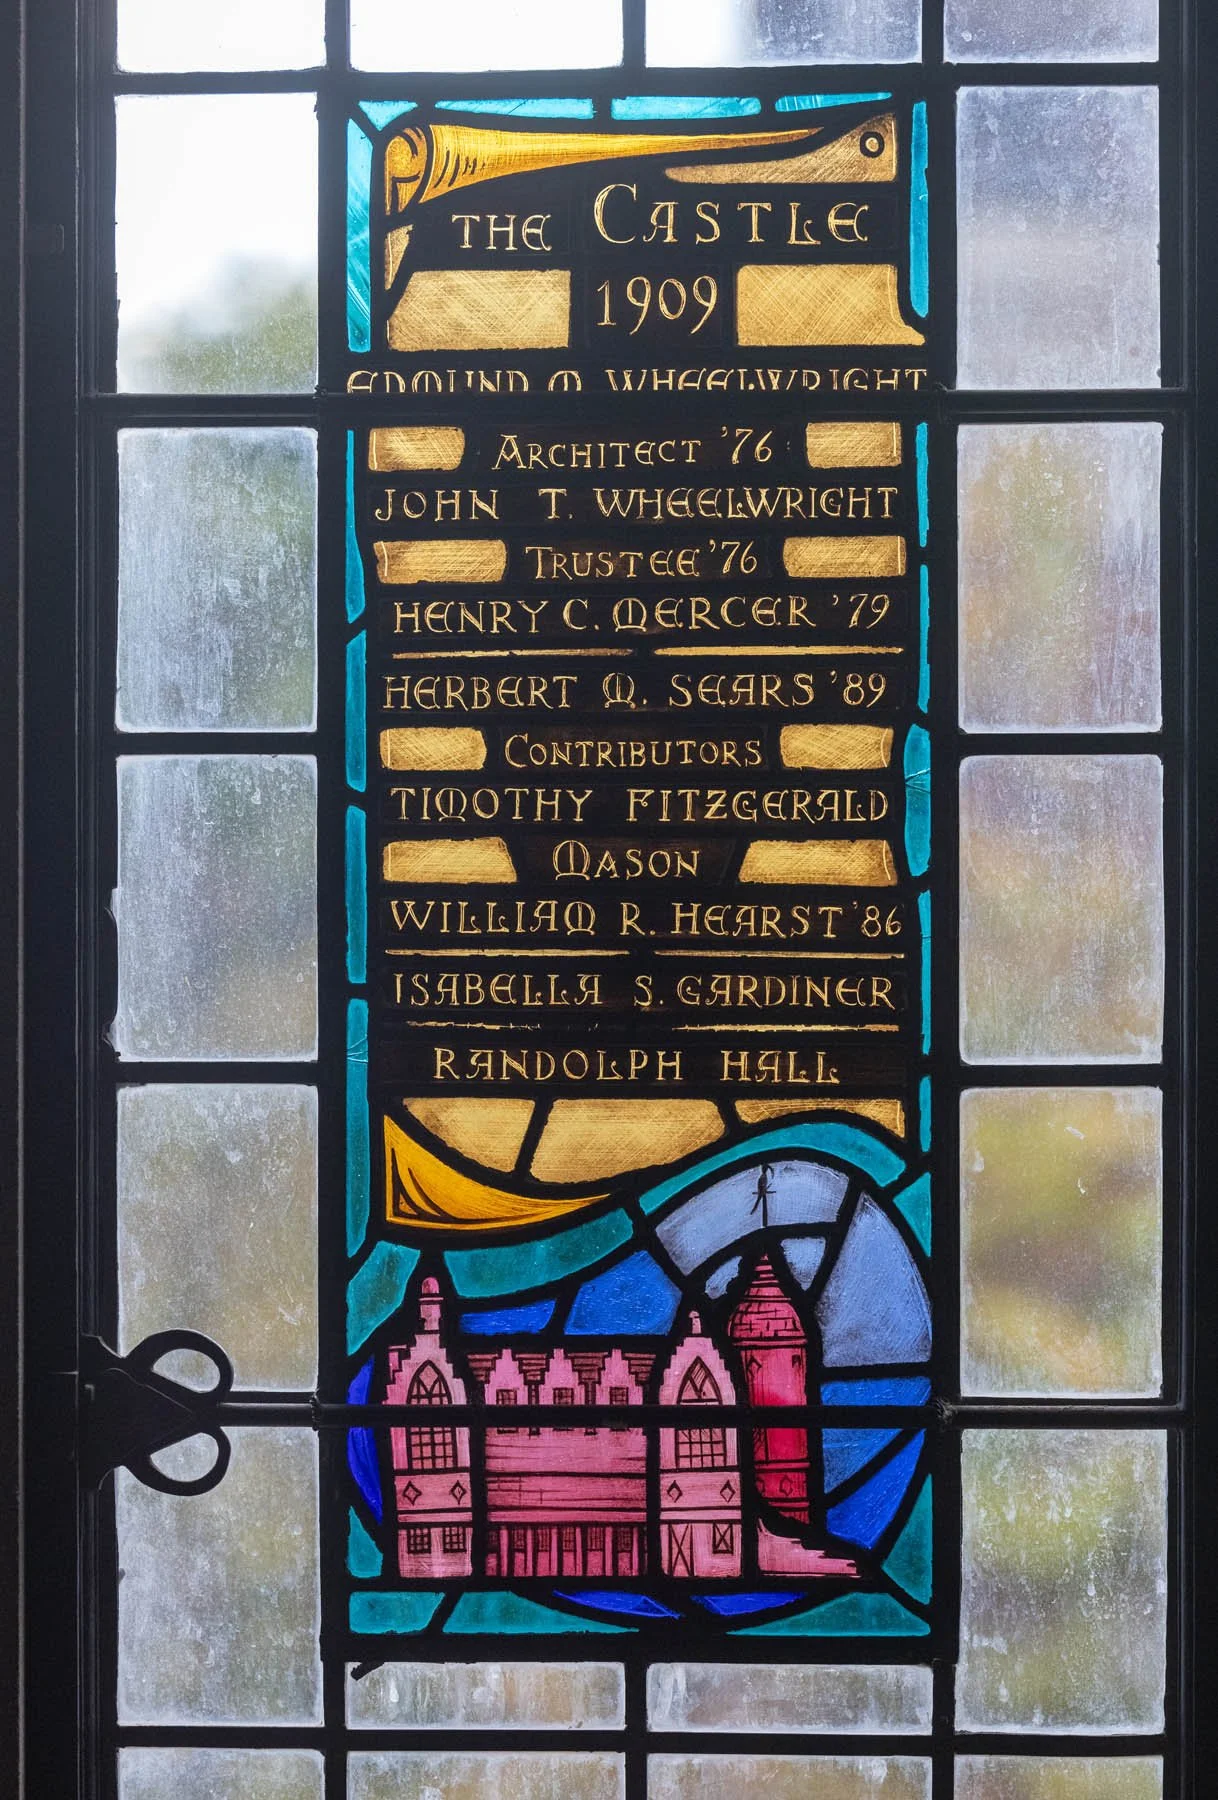 THE CASTLE
1909
EDMUND M. WHEELWRIGHT
ARCHITECT '76
JOHN T. WHEELWRIGHT
TRUSTEE '76
HENRY C. MERCER '79
HERBERT M. SEARS '89
CONTRIBUTORS
TIMOTHY FITZGERALD
MASON
WILLIAM R. HEARST '86
ISABELLA S. GARDINER
RANDOLPH HALL